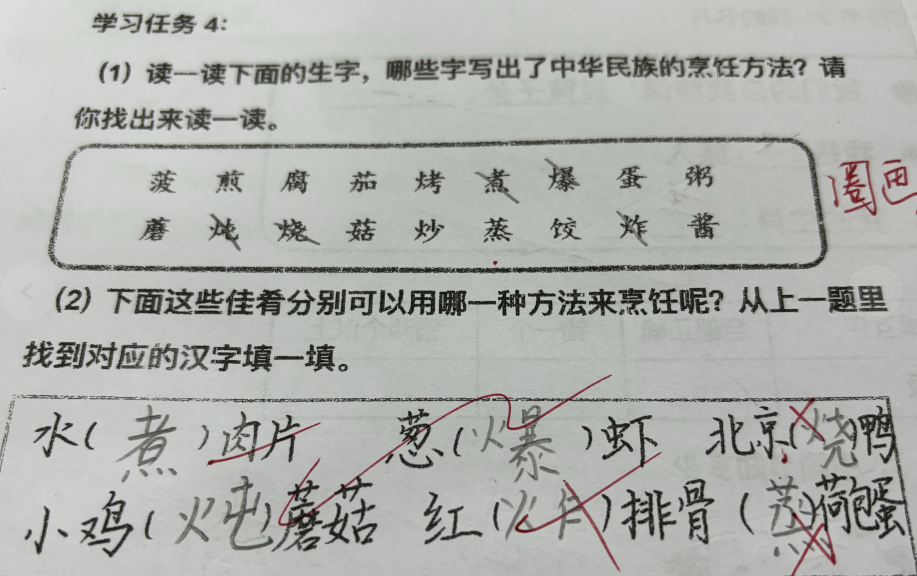 学习任务 4:
(1) 读一读下面的生字，哪些字写出了中华民族的烹饪方法？请
你找出来读一读。
菠 煎 腐 茄 烤 煮 爆 蛋 粥
圈画
磨 炖 烧 菇 炒 蒸 饺 炸 酱
(2) 下面这些佳肴分别可以用哪一种方法来烹饪呢？从上一题里
找到对应的汉字填一填。
水(煮)肉片 葱(爆)虾 北京(烧)鸭
小鸡(炖)蘑菇 红(炸)排骨 (蒸)荷包蛋